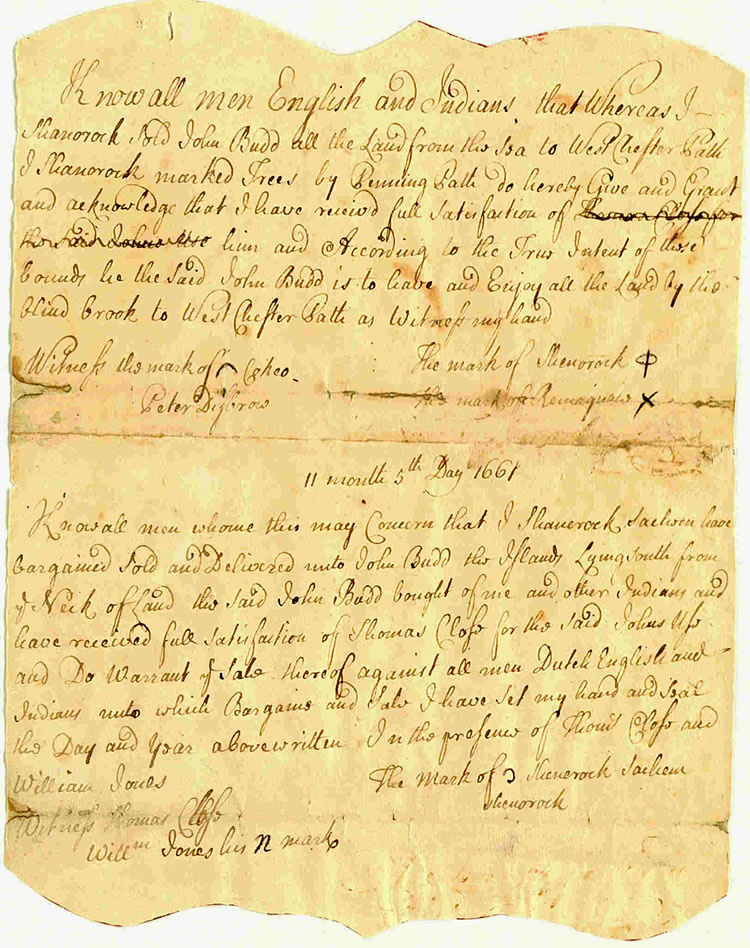 Know all men English and Indians that Whereas I
Shanorock Sold John Budd all the Land from the Sea to West Chester Path
I Shanorock marked Trees by Penning Path do hereby Give and Grant
and acknowledge that I have receivd full Satisfaction of Thomas Close for
the Said Johns Use him and According to the True Intent of those
bounds he the Said John Budd is to have and Enjoy all the Land by the
blind brook to West Chester Path as Witness my hand
Witness the mark of Cokeo The mark of Shenorock
Peter Disbrow the mark of Remaquaw X
11 month 5th Day 1661
Know all men whome this may Concern that I Shanerock Sachem have
bargained Sold and Delivered unto John Budd the Islands Lying South from
ye Neck of Land the Said John Budd bought of me and other Indians and
have received full Satisfaction of Thomas Close for the said Johns Use
and Do Warrant ye Sale thereof against all men Dutch English and
Indians unto which Bargaine and Sale I have Set my hand and Seal
the Day and Year above written In the presence of Thoms Close and
William Jones The Mark of Shenerock Sachem
Shenorock
Witness Thomas Close
Willm Jones his N mark